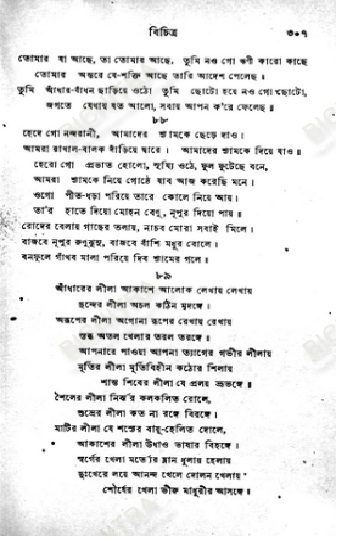 বিচিত্র
৩০৭
তোমার যা আছে, তা তোমার আছে, তুমি নও গো ঋণী কারো কাছে
তোমার অন্তরে যে-শক্তি আছে তারি আদেশ পেলেছ ॥
তুমি আঁধার-বাঁধন ছাড়িয়ে ওঠো তুমি ছোটো হয়ে নও গো ছোটো,
জগতে যেথায় যত আলো, সবায় আপন ক'রে ফেলেছ ॥
৮৮
হেদে গো নন্দরানী, আমাদের শ্যামকে ছেড়ে দাও।
আমরা রাখাল-বালক দাঁড়িয়ে দ্বারে। আমাদের শ্যামকে দিয়ে যাও॥
হেরো গো প্রভাত হোলো, সুয্যি ওঠে, ফুল ফুটেছে বনে,
আমরা শ্যামকে নিয়ে গোষ্ঠে যাব আজ করেছি মনে।
ওগো পীত-ধড়া পরিয়ে তারে কোলে নিয়ে আয়।
তা'র হাতে দিয়ো মোহন বেণু, নূপুর দিয়ো পায়॥
রোদের বেলায় গাছের তলায়, নাচব মোরা সবাই মিলে।
বাজবে নূপুর রুণুঝুনু, বাজবে বাঁশি মধুর বোলে।
বনফুলে গাঁথব মালা পরিয়ে দিব শ্যামের গলে।
৮৯
আঁধারের লীলা আকাশে আলোক লেখায় লেখায়
ছন্দের লীলা অচল কঠিন মৃদঙ্গে।
অরূপের লীলা অগোনা রূপের রেখায় রেখায়
স্তব্ধ অতল খেলার তরল তরঙ্গে॥
আপনারে পাওয়া আপনা ত্যাগের গভীর লীলায়
মূর্তির লীলা মূর্তিবিহীন কঠোর শিলায়
শান্ত শিবের লীলা যে প্রলয় ভ্রূভঙ্গে॥
শৈলের লীলা নির্ঝর কলকলিত রোলে,
শুভ্রের লীলা কত না রঙ্গে বিরঙ্গে।
মাটির লীলা যে শস্যের বায়ু-হেলিত দোলে,
আকাশের লীলা উধাও ভাষার বিহঙ্গে।
স্বর্গের খেলা মর্তের ম্লান ধূলায় হেলায়
দুঃখেরে লয়ে আনন্দ খেলে দোলন খেলায়
শৌর্যের খেলা ভীরু মাধুরীর আসঙ্গে॥